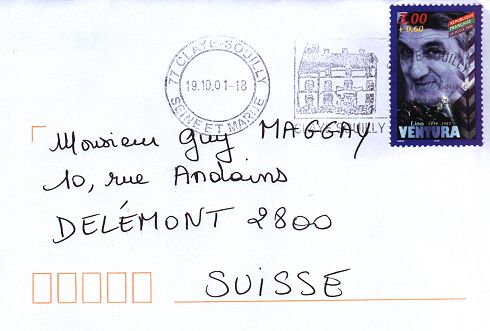 77 CLAYE-SOUILLY
19.10.01-18
SEINE ET MARNE
3.00
+0,60
RÉPUBLIQUE
FRANÇAISE
LA POSTE 1998
Lino 1919-1987
VENTURA
Monsieur Guy MAGGAY
10, rue Andains
DELÉMONT 2800
SUISSE